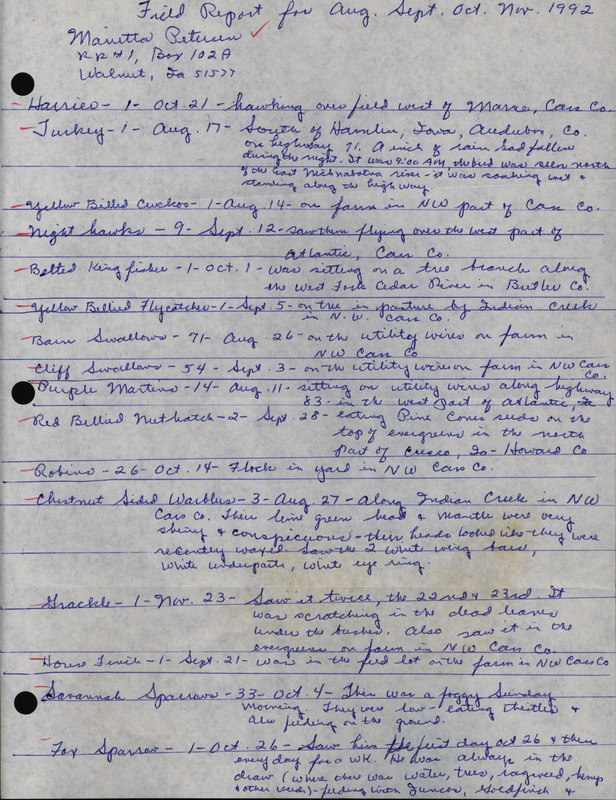 Field Report for Aug. Sept. Oct. Nov. 1992
Marietta Petersen ✓
RR#1, Box 102A
Walnut, Ia 51577
Harrier - 1 - Oct. 21 - hawking over field west of Marne, Cass Co.
Turkey - 1 - Aug. 17 - South of Hamlin, Iowa, Audubon, Co.
on highway 71. A inch of rain had fallen
during the night. It was 9:00 AM, the bird was seen north
of the East Nishnabotna river - it was soaking wet &
standing along the highway.
Yellow Billed Cuckoo - 1 - Aug. 14 - on farm in NW part of Cass Co.
Night hawks - 9 - Sept. 12 - saw them flying over the west part of
Atlantic, Cass Co.
Belted Kingfisher - 1 - Oct. 1 - was sitting on a tree branch along
the West Fork Cedar River in Butler Co.
Yellow Bellied Flycatcher - 1 - Sept. 5 - on tree in pasture by Indian Creek
in N.W. Cass Co.
Barn Swallows - 71 - Aug. 26 - on the utility wires on farm in
NW Cass Co
Cliff Swallows - 54 - Sept. 3 - on the utility wires on farm in NW Cass
Co.
Purple Martins - 14 - Aug. 11 - sitting on utility wires along highway
83 - in the west part of Atlantic,
Red Bellied Nuthatch - 2 - Sept. 28 - eating Pine Cones seeds on the
top of evergreens in the north
part of Cresco, Ia - Howard Co
Robins - 26 - Oct. 14 - Flock in yard in NW Cass Co.
Chestnut Sided Warblers - 3 - Aug. 27 - Along Indian Creek in NW
Cass Co. Their lime green head & mantle were very
shiny & conspicuous - their heads looked like they were
recently waxed. Saw the 2 white wing bars,
white underparts, white eye ring.
Grackle - 1 - Nov. 23 - Saw it twice, the 22nd & 23rd. It
was scratching in the dead leaves
under the bushes. Also saw it in the
evergreens on farm in NW Cass Co.
House Finch - 1 - Sept. 21 - was in the feed lot on the farm in NW Cass Co
Savannah Sparrows - 33 - Oct. 4 - There was a foggy Sunday
morning. They were low - eating thistles &
also feeding on the ground.
Fox Sparrow - 1 - Oct. 26 - Saw him the first day Oct 26 & then
every day for a wk. He was always in the
draw (where there was water, trees, ragweed, hemp
& other weeds) - feeding with Juncos, Goldfinch &